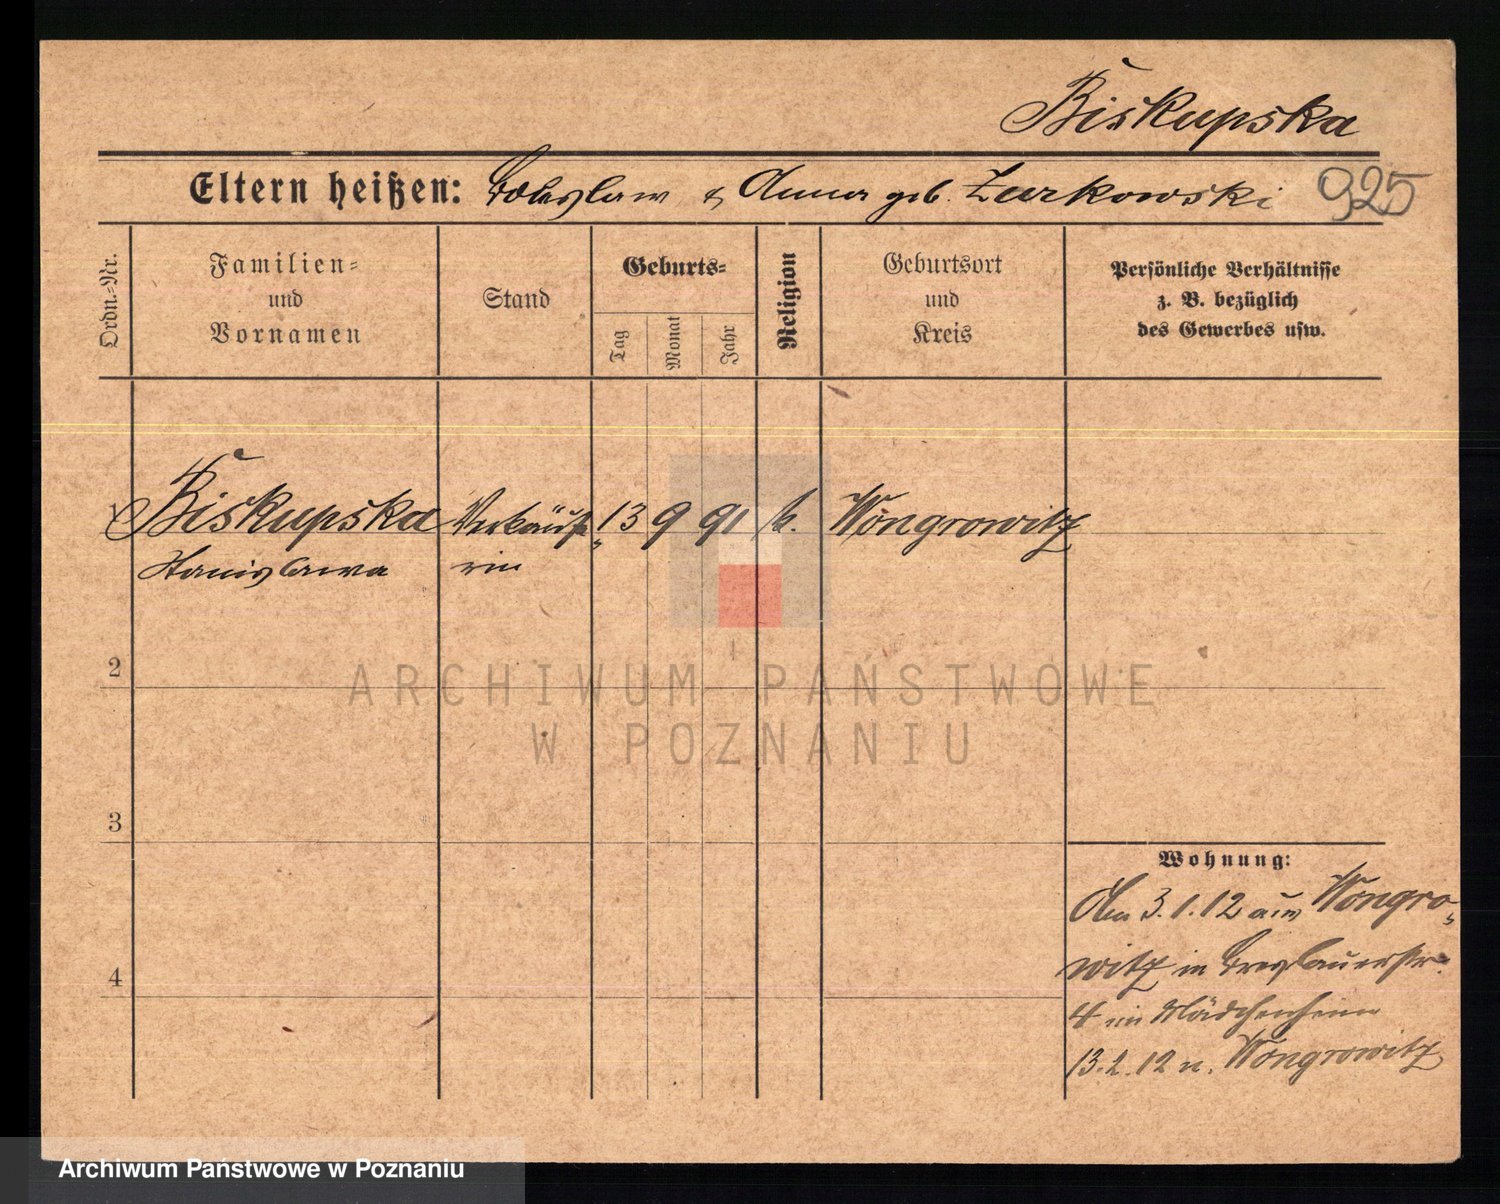 Biskupska
Eltern heißen: Boleslaw & Anna geb. Zurkowski 925
Ordn.-Nr.
Familien-
und
Vornamen
Stand
Geburts-
Tag
Monat
Jahr
Religion
Geburtsort
und
Kreis
Persönliche Verhältnisse
z. B. bezüglich
des Gewerbes usw.
1 Biskupska Verkäufe- 13 9 91 k. Wongrowitz
Stanislawa rin
2
ARCHIWUM PAŃSTWOWE
W POZNANIU
3
Wohnung:
Am 3.1.12 aus Wongro-
witz in Breslauerstr.
4
4 im Mädchenheim
13.2.12 n. Wongrowitz
Archiwum Państwowe w Poznaniu